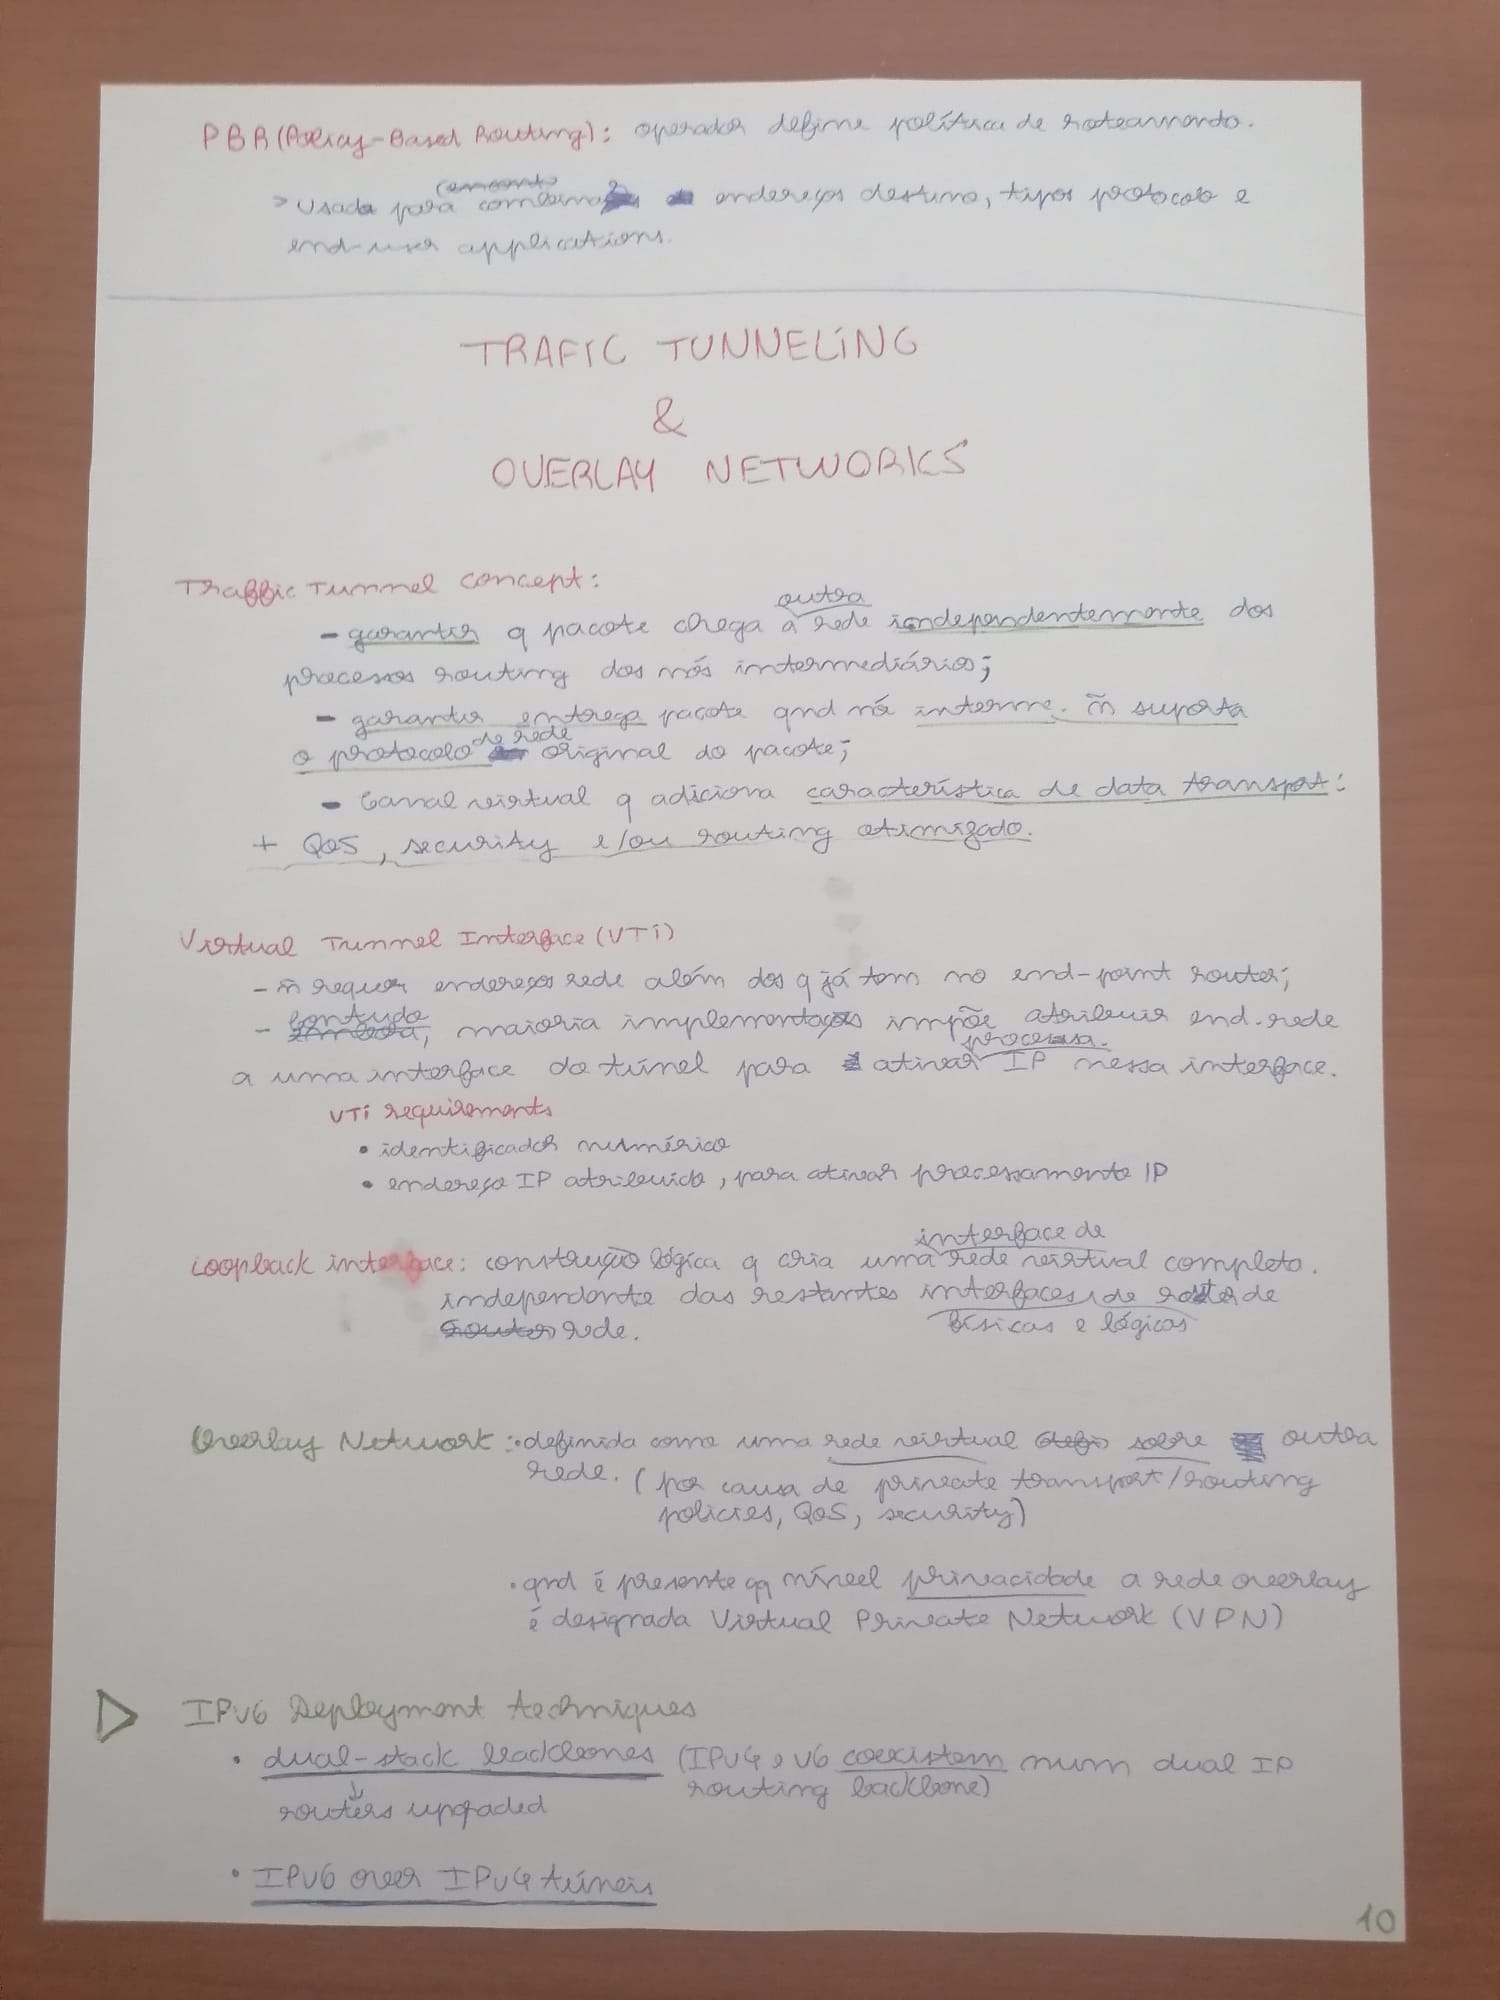 PBR (Policy-Based Routing): operador define política de roteamento.
> Usada para endereços destino, tipos protocolo e
end-user applications.
TRAFIC TUNNELING
&
OVERLAY NETWORKS
Traffic Tunnel concept:
- garantir q pacote chega à outra rede independentemente dos
processos routing dos nós intermediários;
- garantir entrega pacote qnd nó interme. ñ suporta
o protocolo de rede original do pacote;
- Canal virtual q adiciona característica de data transport:
+ QoS, security e/ou routing otimizado.
Virtual Tunnel Interface (VTi)
- ñ requer endereços rede além dos q já tem no end-point router;
- Contudo, maioria implementações impõe atribuir end. rede
a uma interface do túnel para ativar processa. IP nessa interface.
VTi requirements
• identificador numérico
• endereço IP atribuido, para ativar processamento IP
Loopback interface: construção lógica q cria uma interface de rede virtual completa.
independente das restantes interfaces físicas e lógicas de
rede.
Overlay Network: • definida como uma rede virtual sobre outra
rede. (por causa de private transport/routing
policies, QoS, security)
• qnd é presente qq nível privacidade a rede overlay
é designada Virtual Private Network (VPN)
▷ IPv6 Deployment techniques
• dual-stack backbones (IPv4 e v6 coexistem num dual IP
routing backbone)
↓
routers upgraded
• IPv6 over IPv4 túneis
10